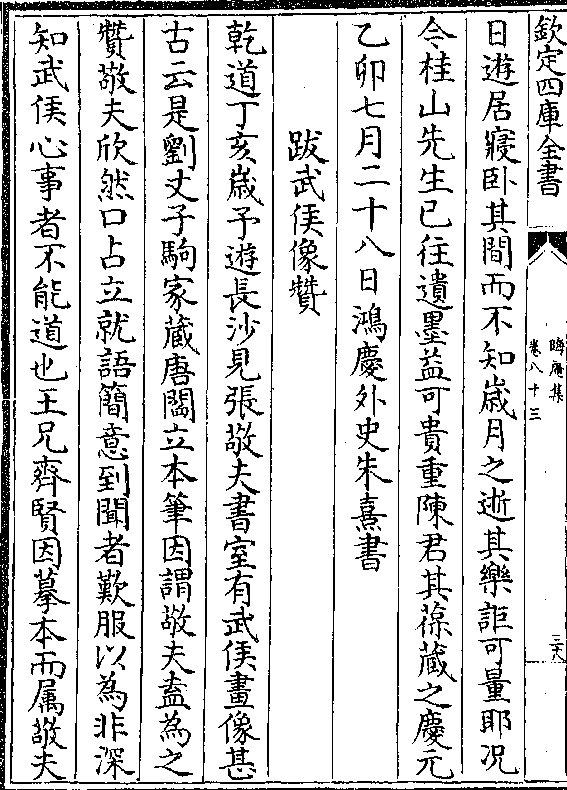 欽定四庫全書
晦庵集
卷八十三
三十八
日遊居寢卧其間而不知歳月之逝其樂詎可量耶况
今桂山先生已往遺墨益可貴重陳君其葆蔵之慶元
乙卯七月二十八日鴻慶外史朱熹書
跋武侯像贊
乾道丁亥歳予遊長沙見張敬夫書室有武侯畫像甚
古云是劉丈子駒家蔵唐閻立本筆因謂敬夫盍為之
贊敬夫欣然口占立就語簡意到聞者歎服以為非深
知武侯心事者不能道也王兄齊賢因摹本而属敬夫